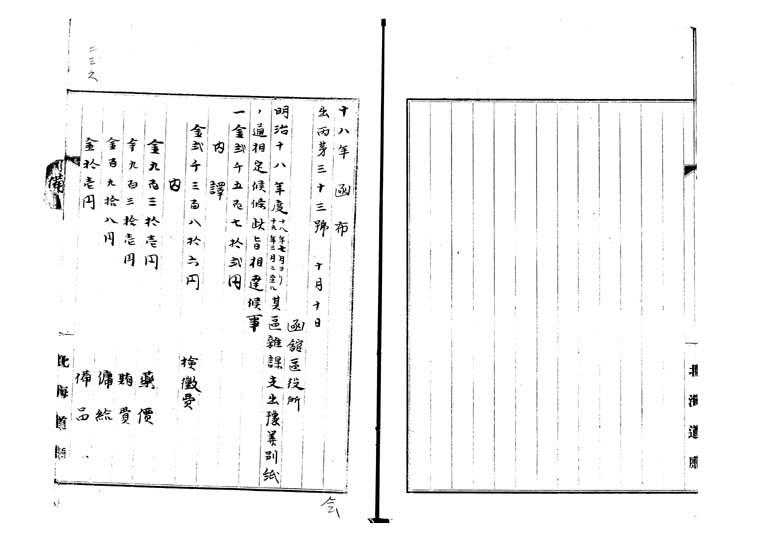 北海道廳
十八年 函布
出丙第三十三號 十月十日
函館區役所
明治十八年度十八年七月ヨリ十九年三月ニ至ル其區雜課支出豫算別紙
之通相定候候此旨相達候事
一金貳千五百七拾貳円
内譯
金貳千三百八拾六円 檢黴費
内
金九百三拾壱円 藥價
金九百三拾壱円 賄費
金百九拾八円 傭給
金拾壱円 備品
備
北海道廳
二三之